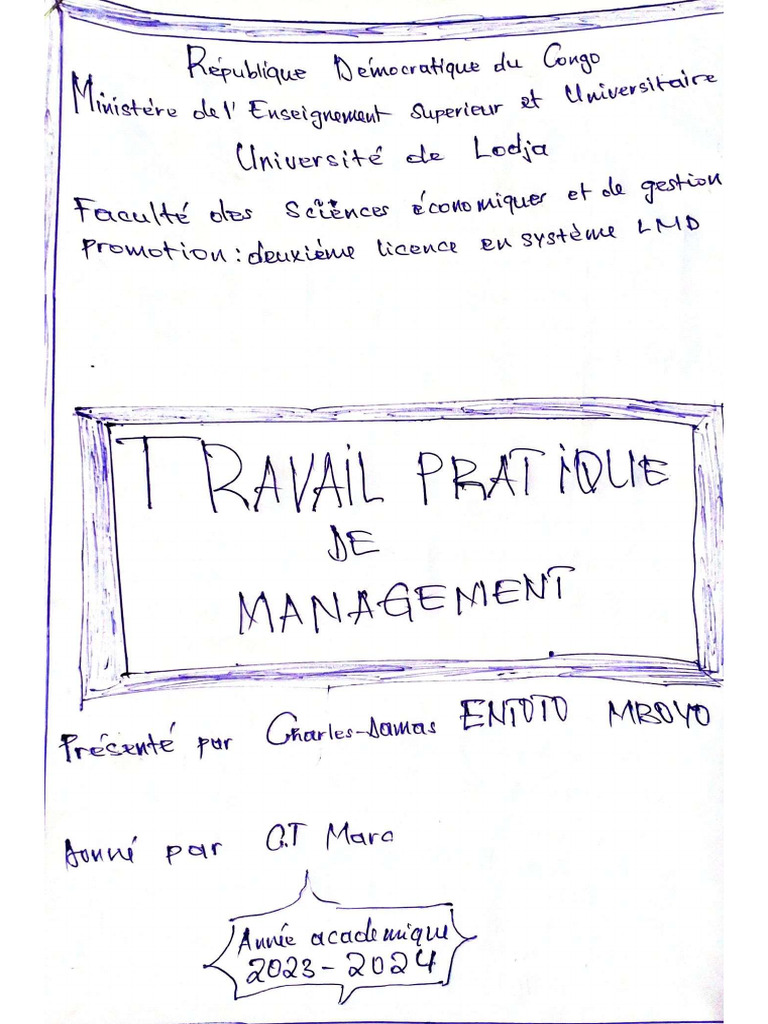 République Démocratique du Congo
Ministére de l'Enseignement Superieur et Universitaire
Université de Lodja
Faculté des Sciences économiques et de gestion
Promotion : deuxième licence en système LMD
TRAVAIL PRATIQUE
DE
MANAGEMENT
Présenté par Charles-Damas ENTOTO MBOYO
Donné par C.T Marc
Année academique
2023-2024